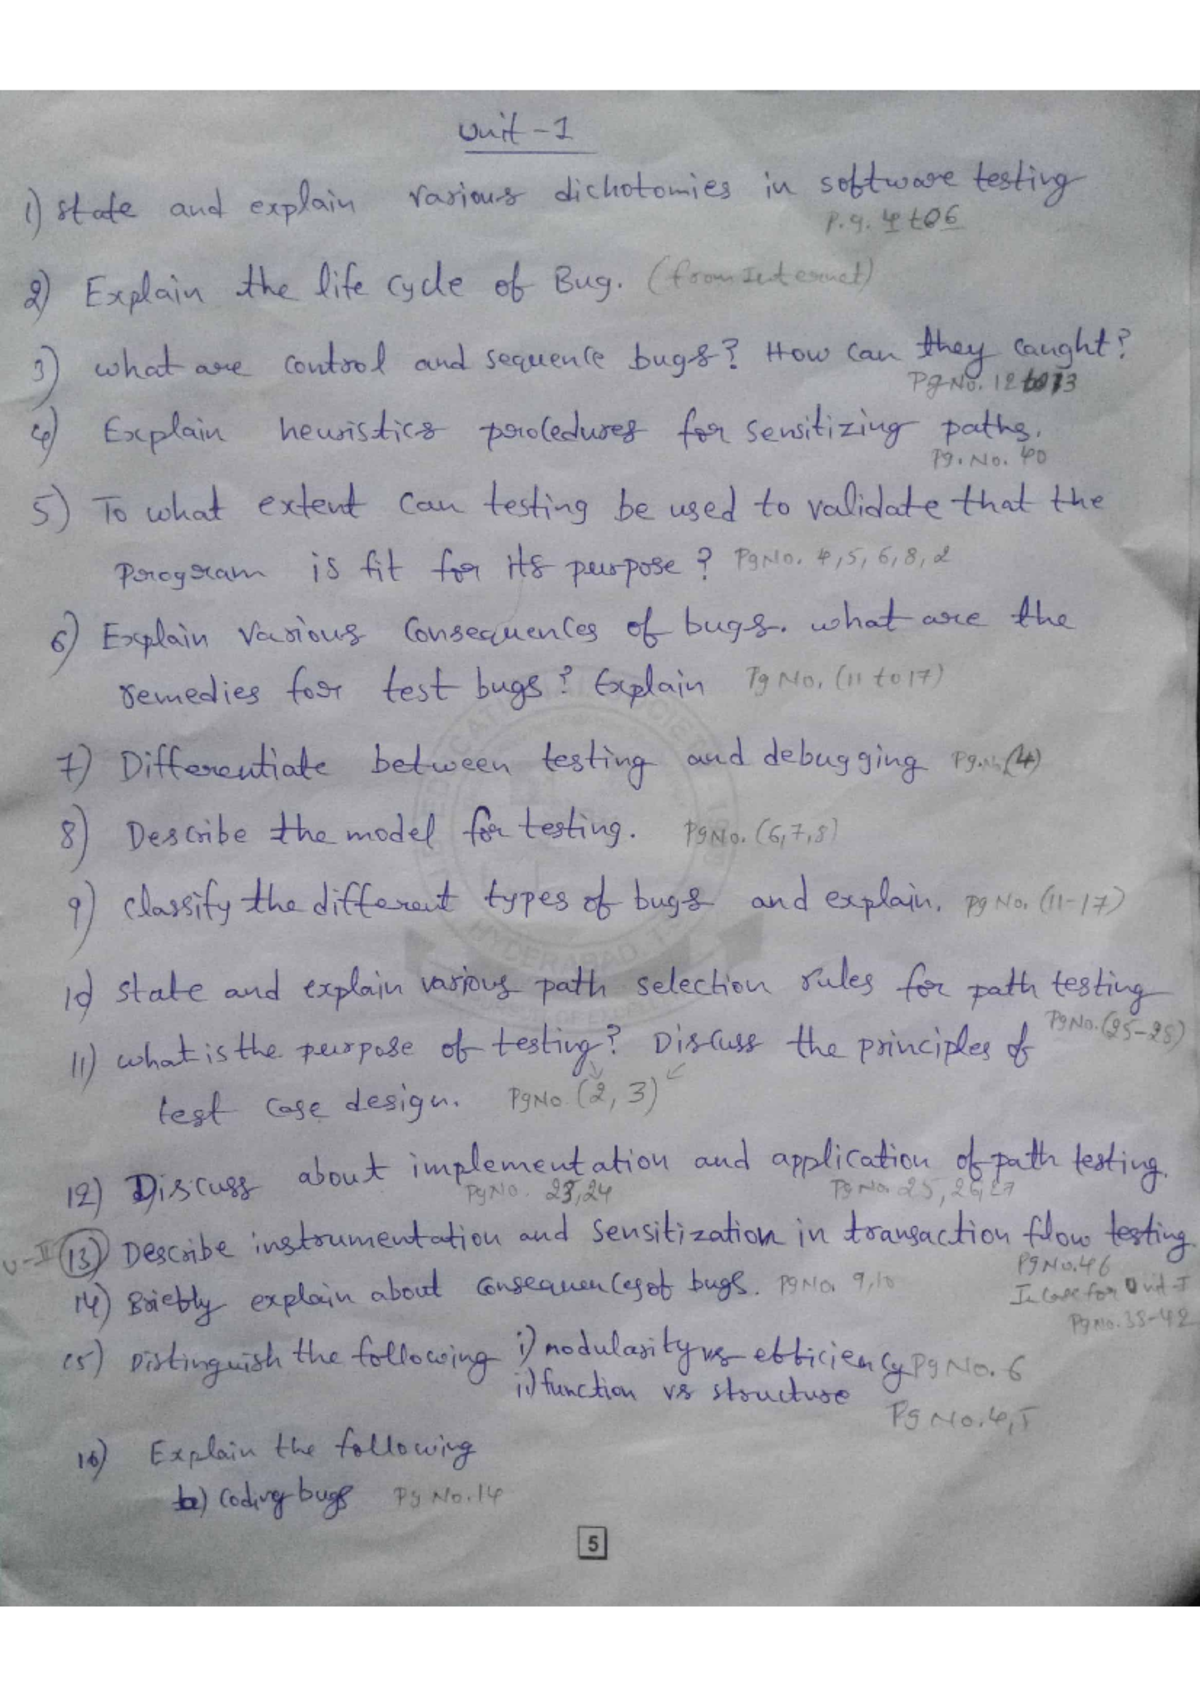 Unit - 1
1) State and explain various dichotomies in software testing
P.g. 4 to 6
2) Explain the life cycle of Bug. (from Internet)
3) what are control and sequence bugs? How can they caught?
Pg No. 12 to 13
4) Explain heuristics procedures for sensitizing paths.
Pg. No. 40
5) To what extent can testing be used to validate that the
Program is fit for its purpose? Pg No. 4,5,6,8,2
6) Explain various consequences of bugs. what are the
remedies for test bugs? Explain Pg No. (11 to 17)
7) Differentiate between testing and debugging Pg.No(4)
8) Describe the model for testing. Pg No. (6,7,8)
9) classify the different types of bugs and explain. Pg No. (11-17)
10) state and explain various path selection rules for path testing
Pg No. (25-28)
11) what is the purpose of testing? Discuss the principles of
test case design. Pg No. (2, 3)
12) Discuss about implementation and application of path testing.
Pg No. 23,24 Pg No 25, 26,27
U-II (13) Describe instrumentation and sensitization in transaction flow testing
Pg No.46
In case for Unit-I
Pg No. 38-42
14) Briefly explain about consequences of bugs. Pg No. 9,10
15) Distinguish the following i) modularity vs efficiency Pg No. 6
ii) function vs structure
Pg No. 4,5
16) Explain the following
a) coding bugs Pg No. 14
5
HYDERABAD